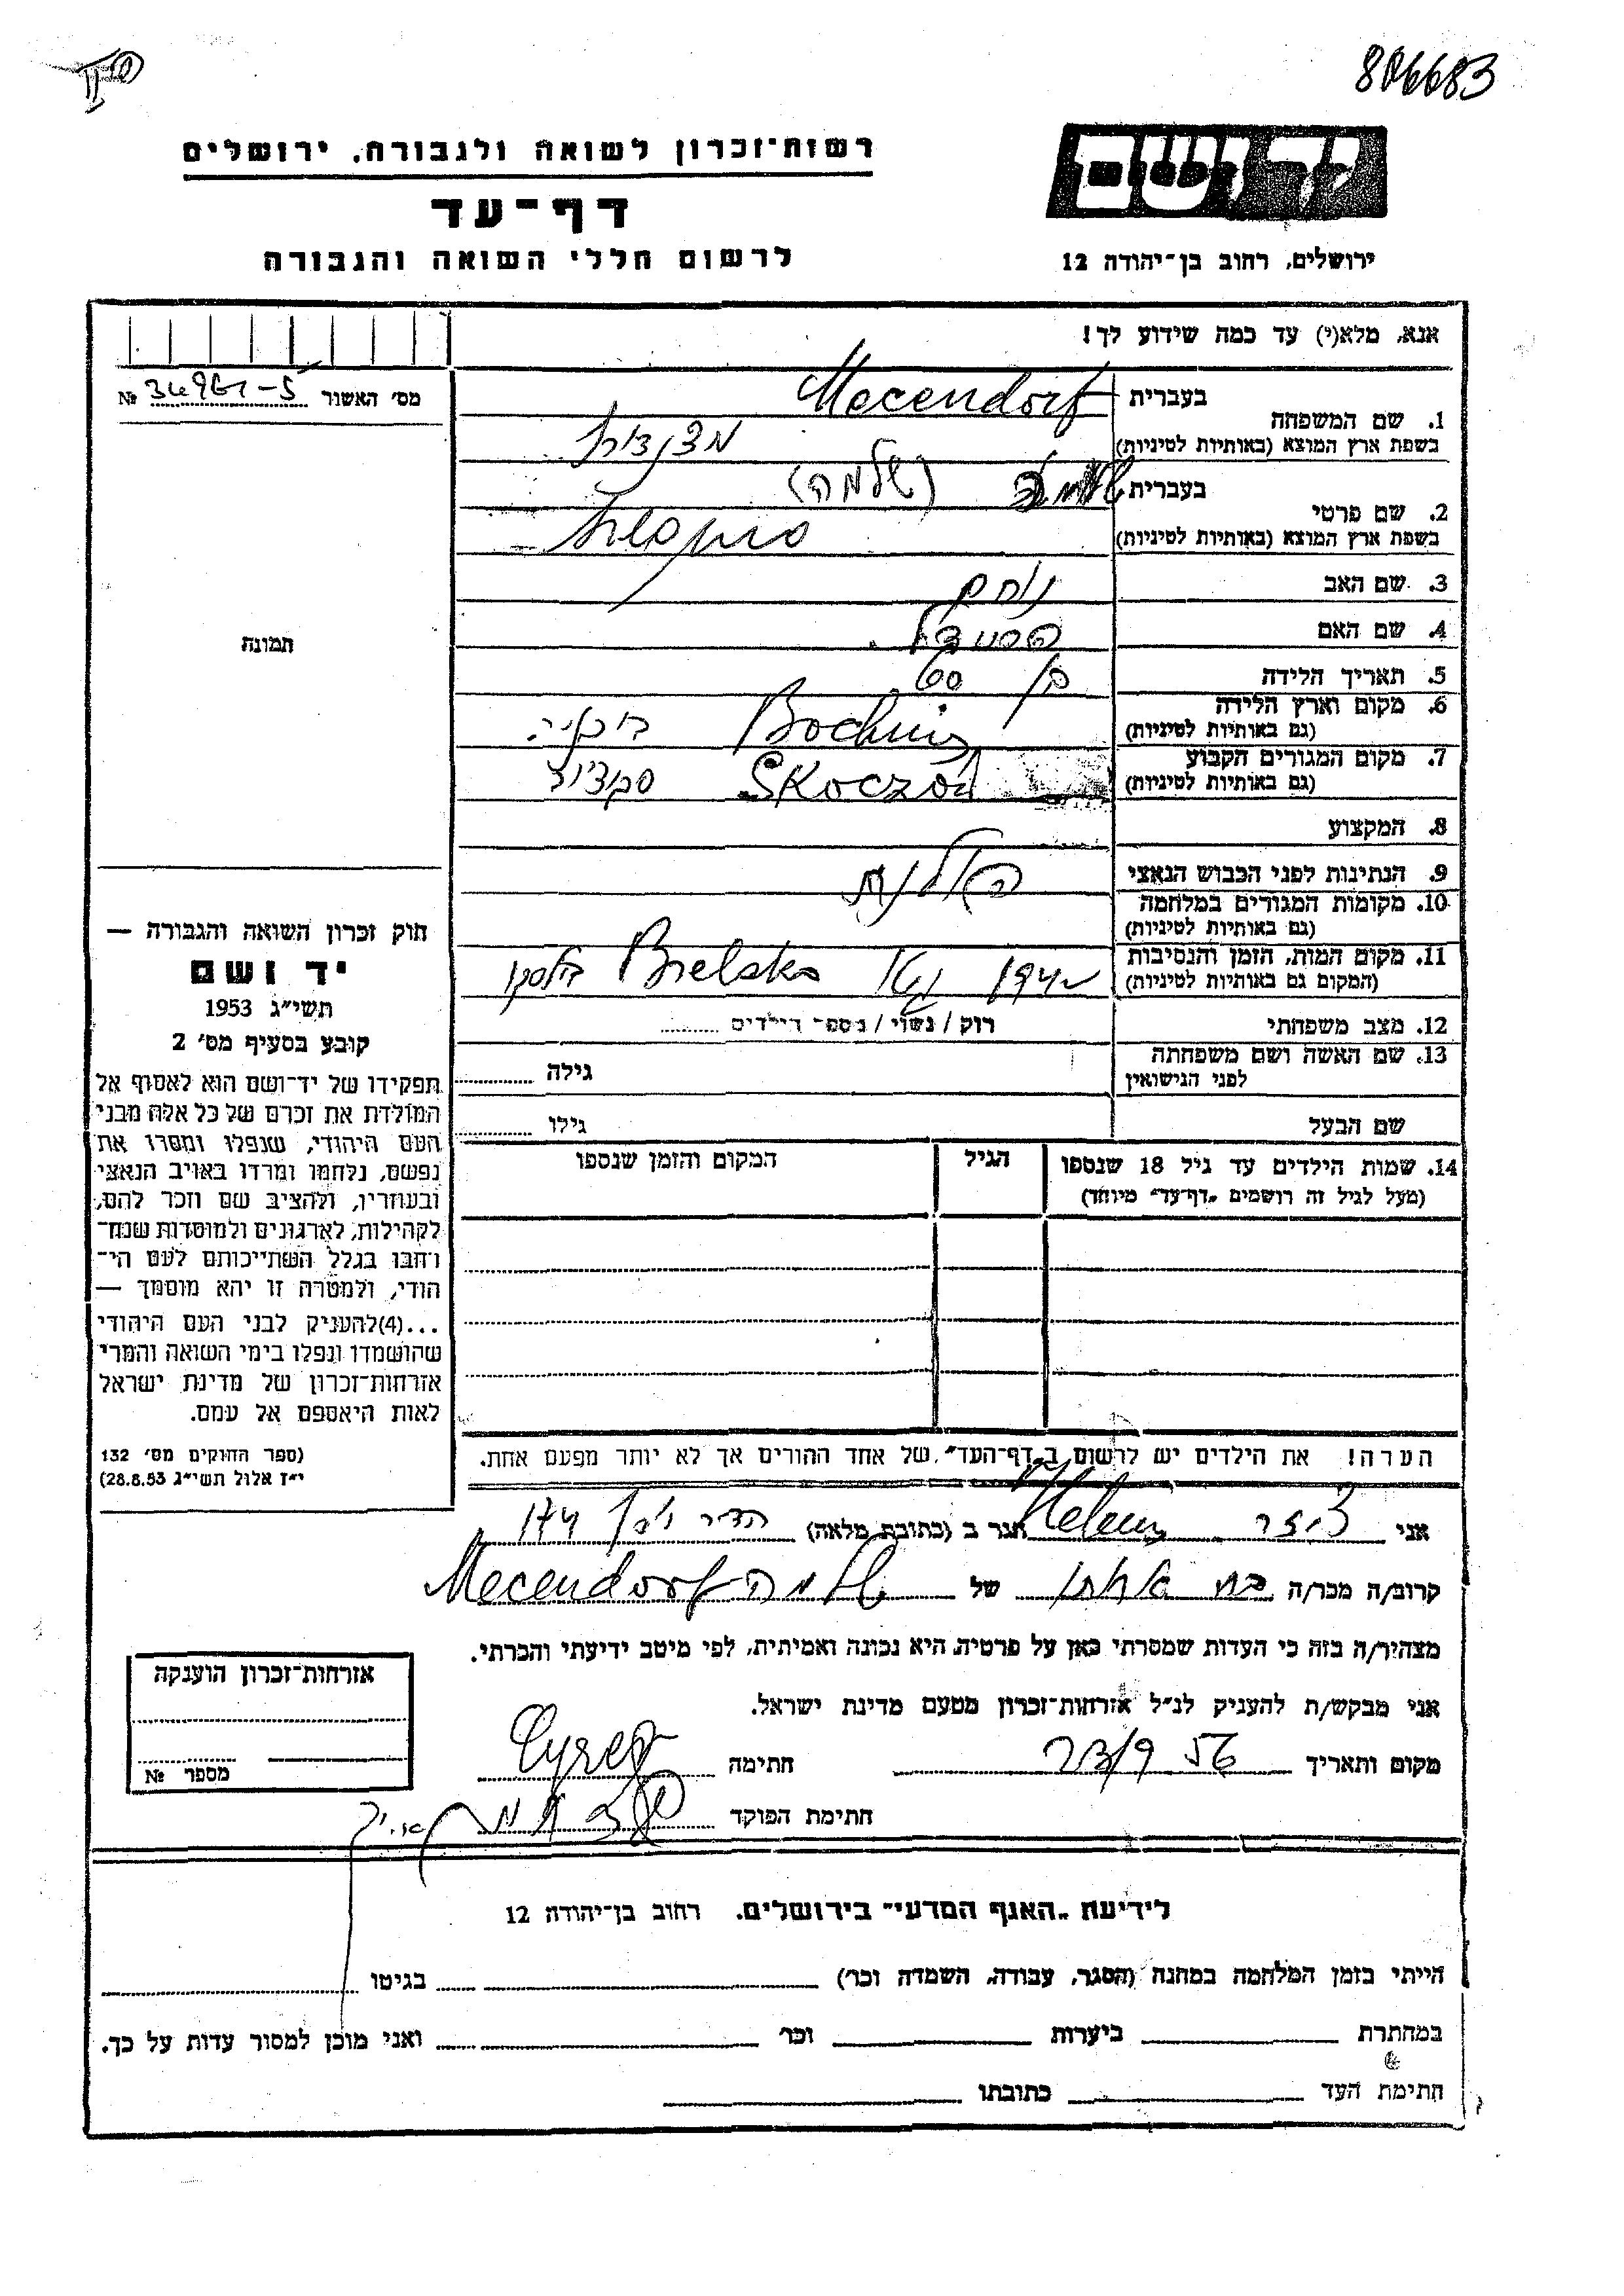 806683
רשות־זכרון לשואה ולגבורה, ירושלים
דף־עד
לרשום חללי השואה והגבורה
יד ושם
ירושלים, רחוב בן־יהודה 12
אנא, מלא(י) עד כמה שידוע לך!
מס׳ האשור №
1. שם המשפחה
בעברית Mecendorf
בשפת ארץ המוצא (באותיות לטיניות) מצנדורף
2. שם פרטי
בעברית (שלמה)
בשפת ארץ המוצא (באותיות לטיניות)
3. שם האב נחום
4. שם האם
5. תאריך הלידה בן 60
6. מקום וארץ הלידה
(גם באותיות לטיניות) Bochnia בוכניה
7. מקום המגורים הקבוע
(גם באותיות לטיניות) Skoczów סקוצ׳וב
8. המקצוע
9. הנתינות לפני הכבוש הנאצי פולנית
10. מקומות המגורים במלחמה
(גם באותיות לטיניות)
11. מקום המות, הזמן והנסיבות
(המקום גם באותיות לטיניות) Bielsko בילסקו
12. מצב משפחתי רוק / נשוי / מספר הילדים
13. שם האשה ושם משפחתה
לפני הנישואין
גילה
שם הבעל
גילו
14. שמות הילדים עד גיל 18 שנספו
(מעל לגיל זה רושמים „דף־עד״ מיוחד)
הגיל
המקום והזמן שנספו
הערה! את הילדים יש לרשום ב„דף־העד״ של אחד ההורים אך לא יותר מפעם אחת.
תמונה
חוק זכרון השואה והגבורה —
יד ושם
תשי״ג 1953
קובע בסעיף מס׳ 2
תפקידו של יד־ושם הוא לאסוף אל
המולדת את זכרם של כל אלה מבני
העם היהודי, שנפלו ומסרו את
נפשם, נלחמו ומרדו באויב הנאצי
ובעוזריו, ולהציב שם וזכר להם,
לקהילות, לארגונים ולמוסדות שנח־
רחבו בגלל השתייכותם לעם הי־
הודי, ולמטרה זו יהא מוסמך —
...(4)להעניק לבני העם היהודי
שהושמדו ונפלו בימי השואה והמרי
אזרחות־זכרון של מדינת ישראל
לאות היאספם אל עמם.
(ספר החוקים מס׳ 132
י״ז אלול תשי״ג 28.8.53)
אני Helena הגר ב (כתובת מלאה)
קרוב/ה מכר/ה בת אחותו של שלמה Mecendorf
מצהיר/ה בזה כי העדות שמסרתי כאן על פרטיה, היא נכונה ואמיתית, לפי מיטב ידיעתי והכרתי.
אני מבקש/ת להעניק לנ״ל אזרחות־זכרון מטעם מדינת ישראל.
מקום ותאריך חתימה
חתימת הפוקד
אזרחות־זכרון הוענקה
מספר №
לידיעת „האגף המדעי״ בירושלים. רחוב בן־יהודה 12
הייתי בזמן המלחמה במחנה (הסגר, עבודה, השמדה וכר׳) בגיטו
במחתרת ביערות וכר׳ ואני מוכן למסור עדות על כך.
חתימת העד כתובתו